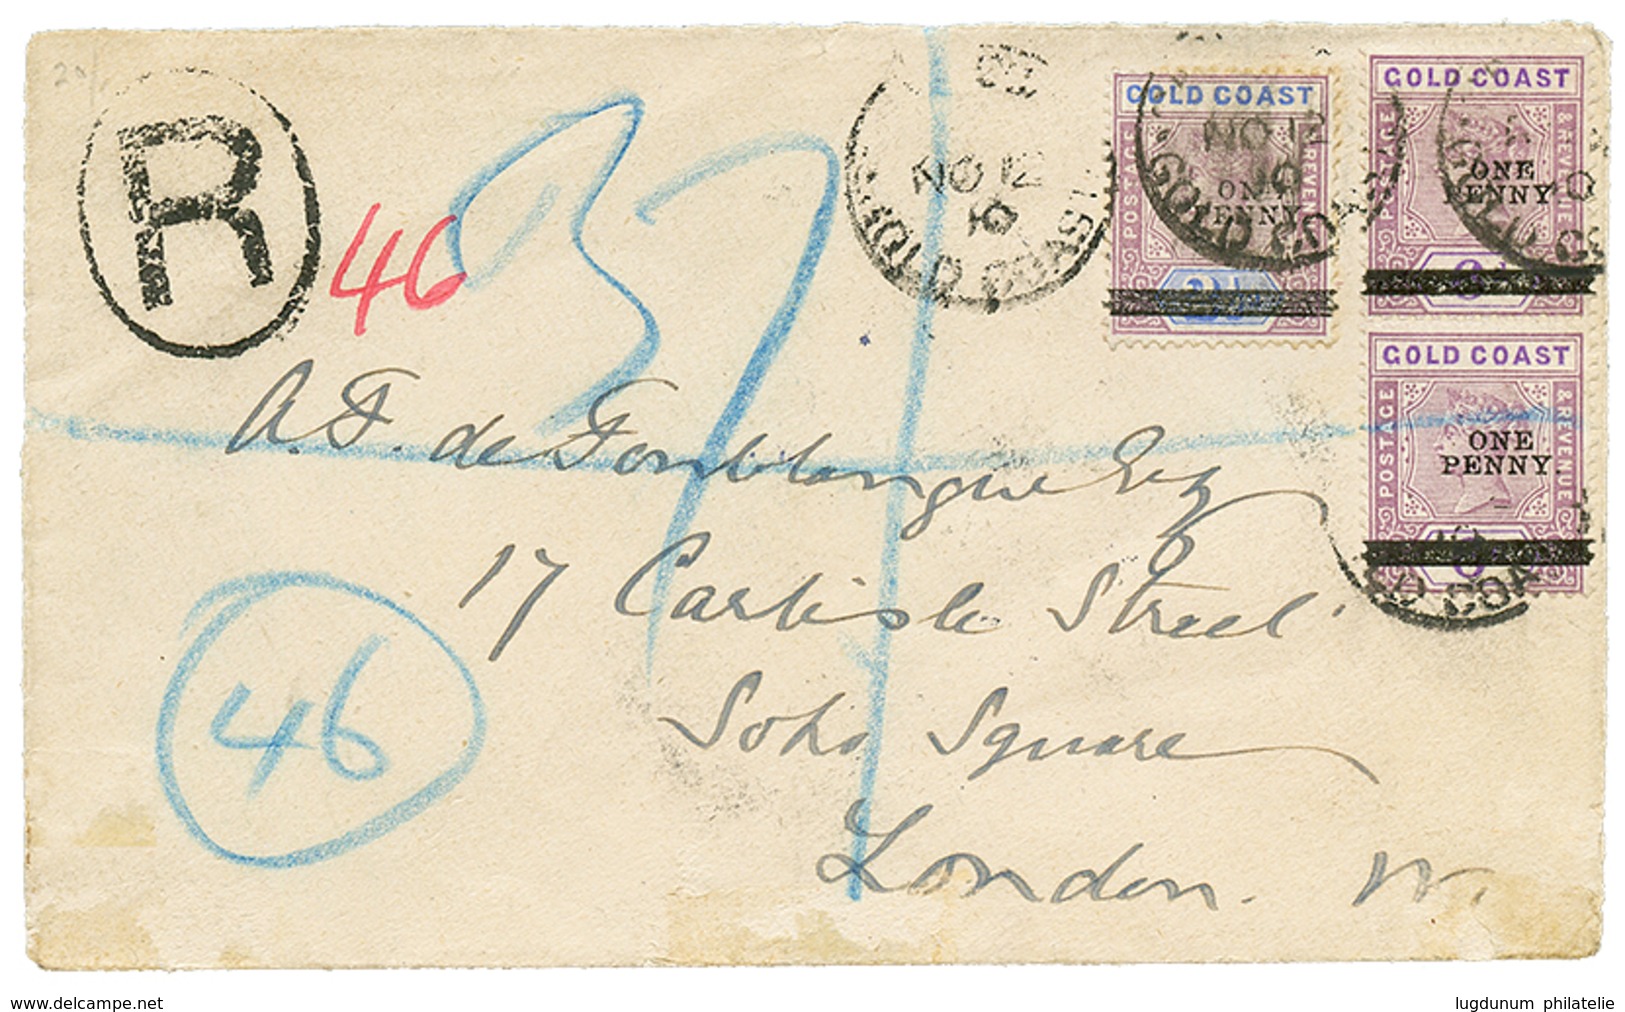 R
46
37
GOLD COAST
NO 12
10
GOLD COAST
POSTAGE
& REVENUE
ONE
PENNY
2½d
NO 12
10
GOLD COAST
GOLD COAST
POSTAGE
& REVENUE
ONE
PENNY
6d
GOLD COAST
POSTAGE
& REVENUE
ONE
PENNY
A. F. de Fonblanque Esq
17 Carlisle Street
Soho Square
London. W.
46
www.delcampe.net
lugdunum philatelie